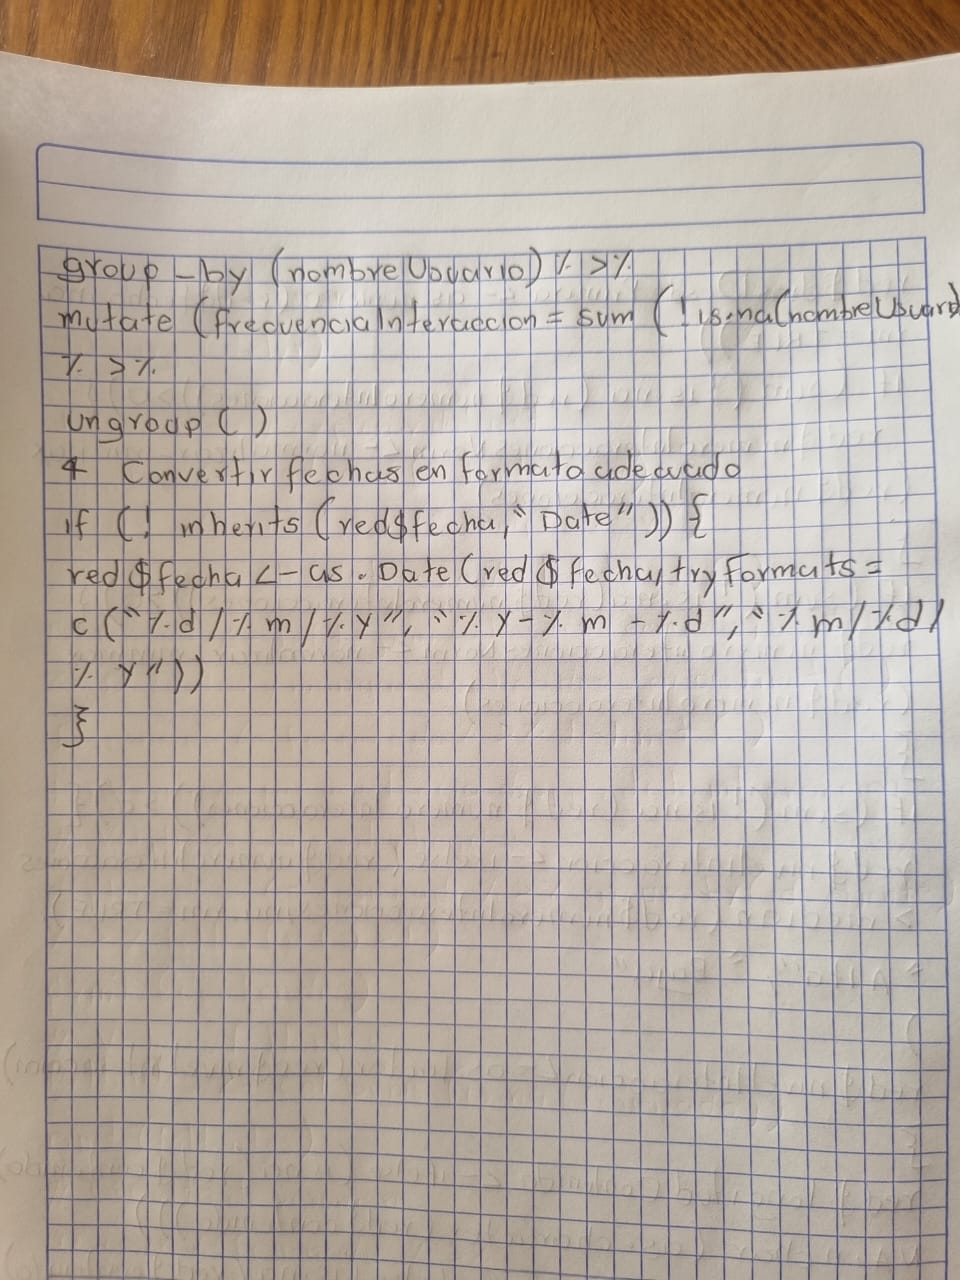 group-by (nombreUsuario) %>%
mutate (frecuenciaInteraccion = sum (!is.na(nombreUsuar
%>%
ungroup ( )
4 Convertir fechas en formato adecuado
if (! inherits (red$fecha, "Date")) {
red$fecha <- as.Date (red$fecha, tryFormats =
c ("%d/%m/%Y", "%Y-%m-%d", "%m/%d/
%Y"))
}